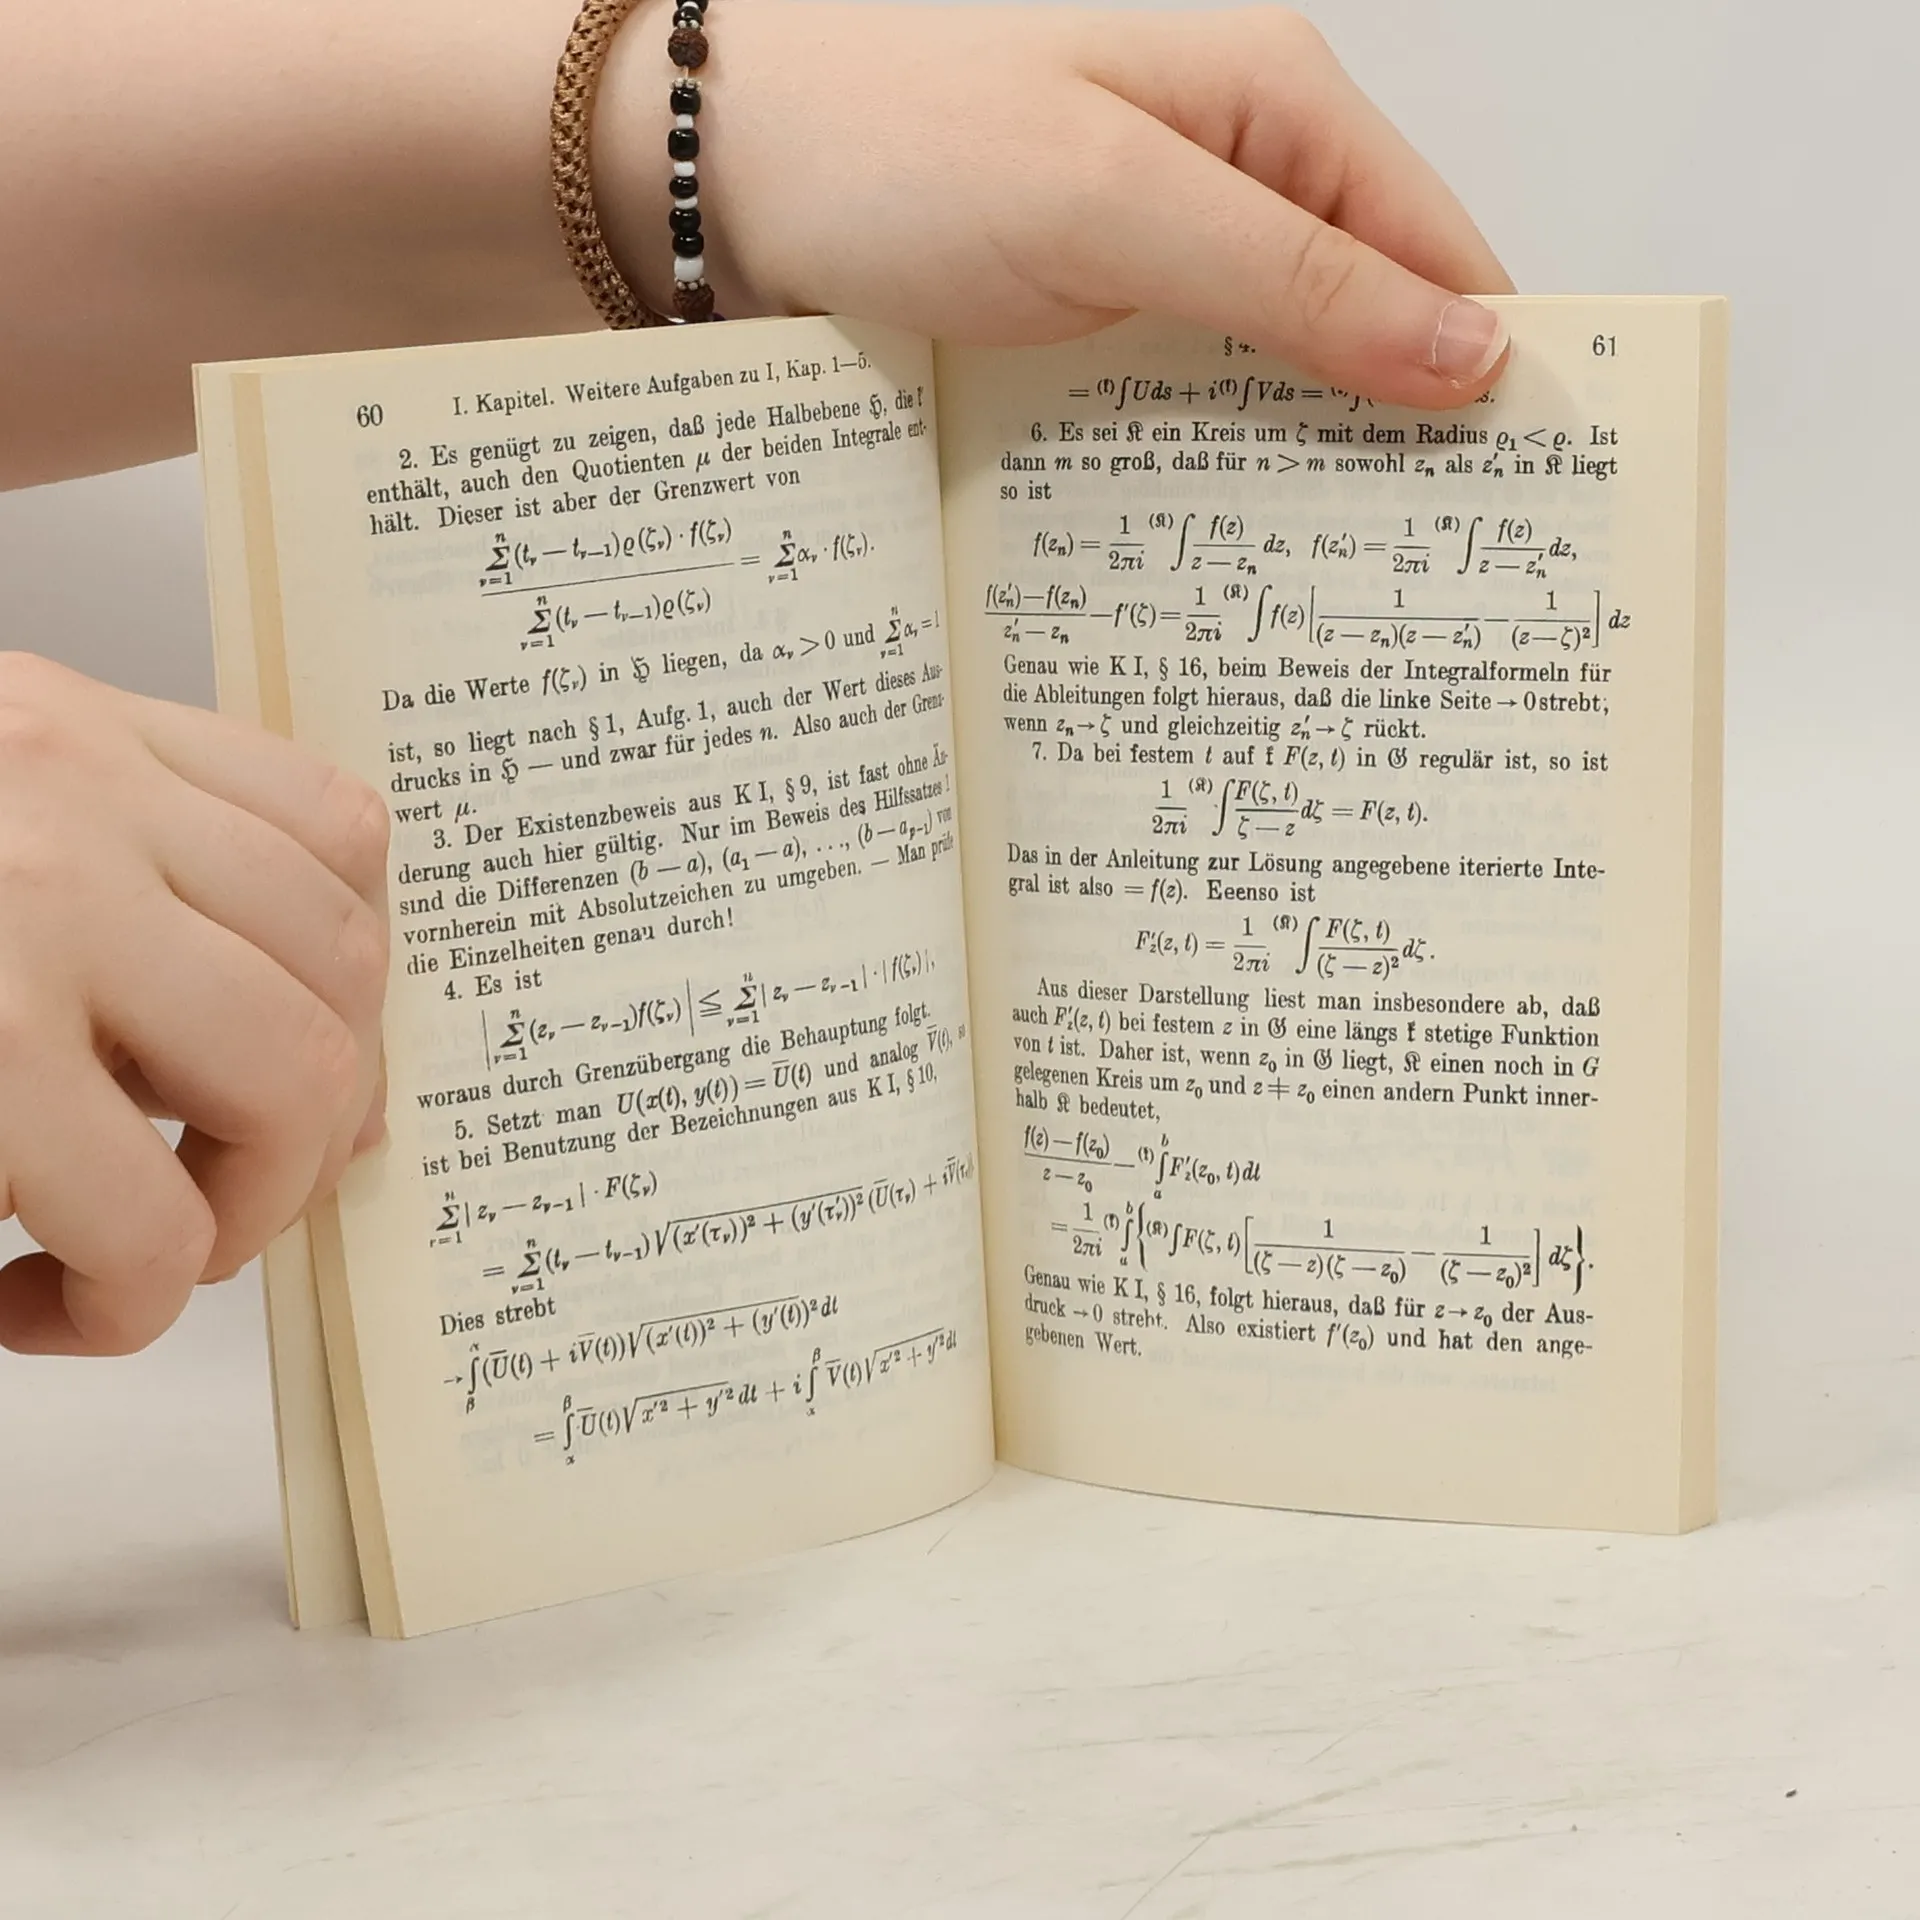 60 I. Kapitel. Weitere Aufgaben zu I, Kap. 1—5.
2. Es genügt zu zeigen, daß jede Halbebene ℌ, die f
enthält, auch den Quotienten μ der beiden Integrale ent-
hält. Dieser ist aber der Grenzwert von
\frac{\sum_{ν=1}^{n}(t_ν — t_{ν—1})ϱ(ζ_ν) · f(ζ_ν)}{\sum_{ν=1}^{n}(t_ν — t_{ν—1})ϱ(ζ_ν)} = \sum_{ν=1}^{n} α_ν · f(ζ_ν).
Da die Werte f(ζ_ν) in ℌ liegen, da α_ν > 0 und \sum_{ν=1}^{n} α_ν = 1
ist, so liegt nach § 1, Aufg. 1, auch der Wert dieses Aus-
drucks in ℌ — und zwar für jedes n. Also auch der Grenz-
wert μ.
3. Der Existenzbeweis aus K I, § 9, ist fast ohne Än-
derung auch hier gültig. Nur im Beweis des Hilfssatzes 1
sind die Differenzen (b — a), (a_1 — a), ..., (b — a_{p—1}) von
vornherein mit Absolutzeichen zu umgeben. — Man prüfe
die Einzelheiten genau durch!
4. Es ist
| \sum_{ν=1}^{n}(z_ν — z_{ν—1})f(ζ_ν) | ≦ \sum_{ν=1}^{n} | z_ν — z_{ν—1} | · | f(ζ_ν) |,
woraus durch Grenzübergang die Behauptung folgt.
5. Setzt man U(x(t), y(t)) = \bar{U}(t) und analog \bar{V}(t), so
ist bei Benutzung der Bezeichnungen aus K I, § 10,
\sum_{ν=1}^{n} | z_ν — z_{ν—1} | · F(ζ_ν)
= \sum_{ν=1}^{n}(t_ν — t_{ν—1}) \sqrt{(x'(τ_ν))² + (y'(τ'_ν))²} (\bar{U}(τ_ν) + i\bar{V}(τ_ν
Dies strebt
→ \int_{β}^{α} (\bar{U}(t) + i\bar{V}(t)) \sqrt{(x'(t))² + (y'(t))²} dt
= \int_{α}^{β} \bar{U}(t) \sqrt{x'² + y'²} dt + i \int_{α}^{β} \bar{V}(t) \sqrt{x'² + y'²} dt
§ 4. 61
= ^{(𝔨)}∫ U ds + i ^{(𝔨)}∫ V ds = s.
6. Es sei 𝔎 ein Kreis um ζ mit dem Radius ϱ_1 < ϱ. Ist
dann m so groß, daß für n > m sowohl z_n als z'_n in 𝔎 liegt
so ist
f(z_n) = \frac{1}{2πi} ^{(𝔎)}∫ \frac{f(z)}{z — z_n} dz, f(z'_n) = \frac{1}{2πi} ^{(𝔎)}∫ \frac{f(z)}{z — z'_n} dz,
\frac{f(z'_n) — f(z_n)}{z'_n — z_n} — f'(ζ) = \frac{1}{2πi} ^{(𝔎)}∫ f(z) [ \frac{1}{(z — z_n)(z — z'_n)} — \frac{1}{(z — ζ)²} ] dz
Genau wie K I, § 16, beim Beweis der Integralformeln für
die Ableitungen folgt hieraus, daß die linke Seite → 0 strebt;
wenn z_n → ζ und gleichzeitig z'_n → ζ rückt.
7. Da bei festem t auf 𝔨 F(z, t) in 𝔊 regulär ist, so ist
\frac{1}{2πi} ^{(𝔎)}∫ \frac{F(ζ, t)}{ζ — z} dζ = F(z, t).
Das in der Anleitung zur Lösung angegebene iterierte Inte-
gral ist also = f(z). Eeenso ist
F'_z(z, t) = \frac{1}{2πi} ^{(𝔎)}∫ \frac{F(ζ, t)}{(ζ — z)²} dζ.
Aus dieser Darstellung liest man insbesondere ab, daß
auch F'_z(z, t) bei festem z in 𝔊 eine längs 𝔨 stetige Funktion
von t ist. Daher ist, wenn z_0 in 𝔊 liegt, 𝔎 einen noch in G
gelegenen Kreis um z_0 und z ≠ z_0 einen andern Punkt inner-
halb 𝔎 bedeutet,
\frac{f(z) — f(z_0)}{z — z_0} — ^{(𝔨)}\int_{a}^{b} F'_z(z_0, t) dt
= \frac{1}{2πi} ^{(𝔨)}\int_{a}^{b} { ^{(𝔎)}∫ F(ζ, t) [ \frac{1}{(ζ — z)(ζ — z_0)} — \frac{1}{(ζ — z_0)²} ] dζ }.
Genau wie K I, § 16, folgt hieraus, daß für z → z_0 der Aus-
druck → 0 strebt. Also existiert f'(z_0) und hat den ange-
gebenen Wert.